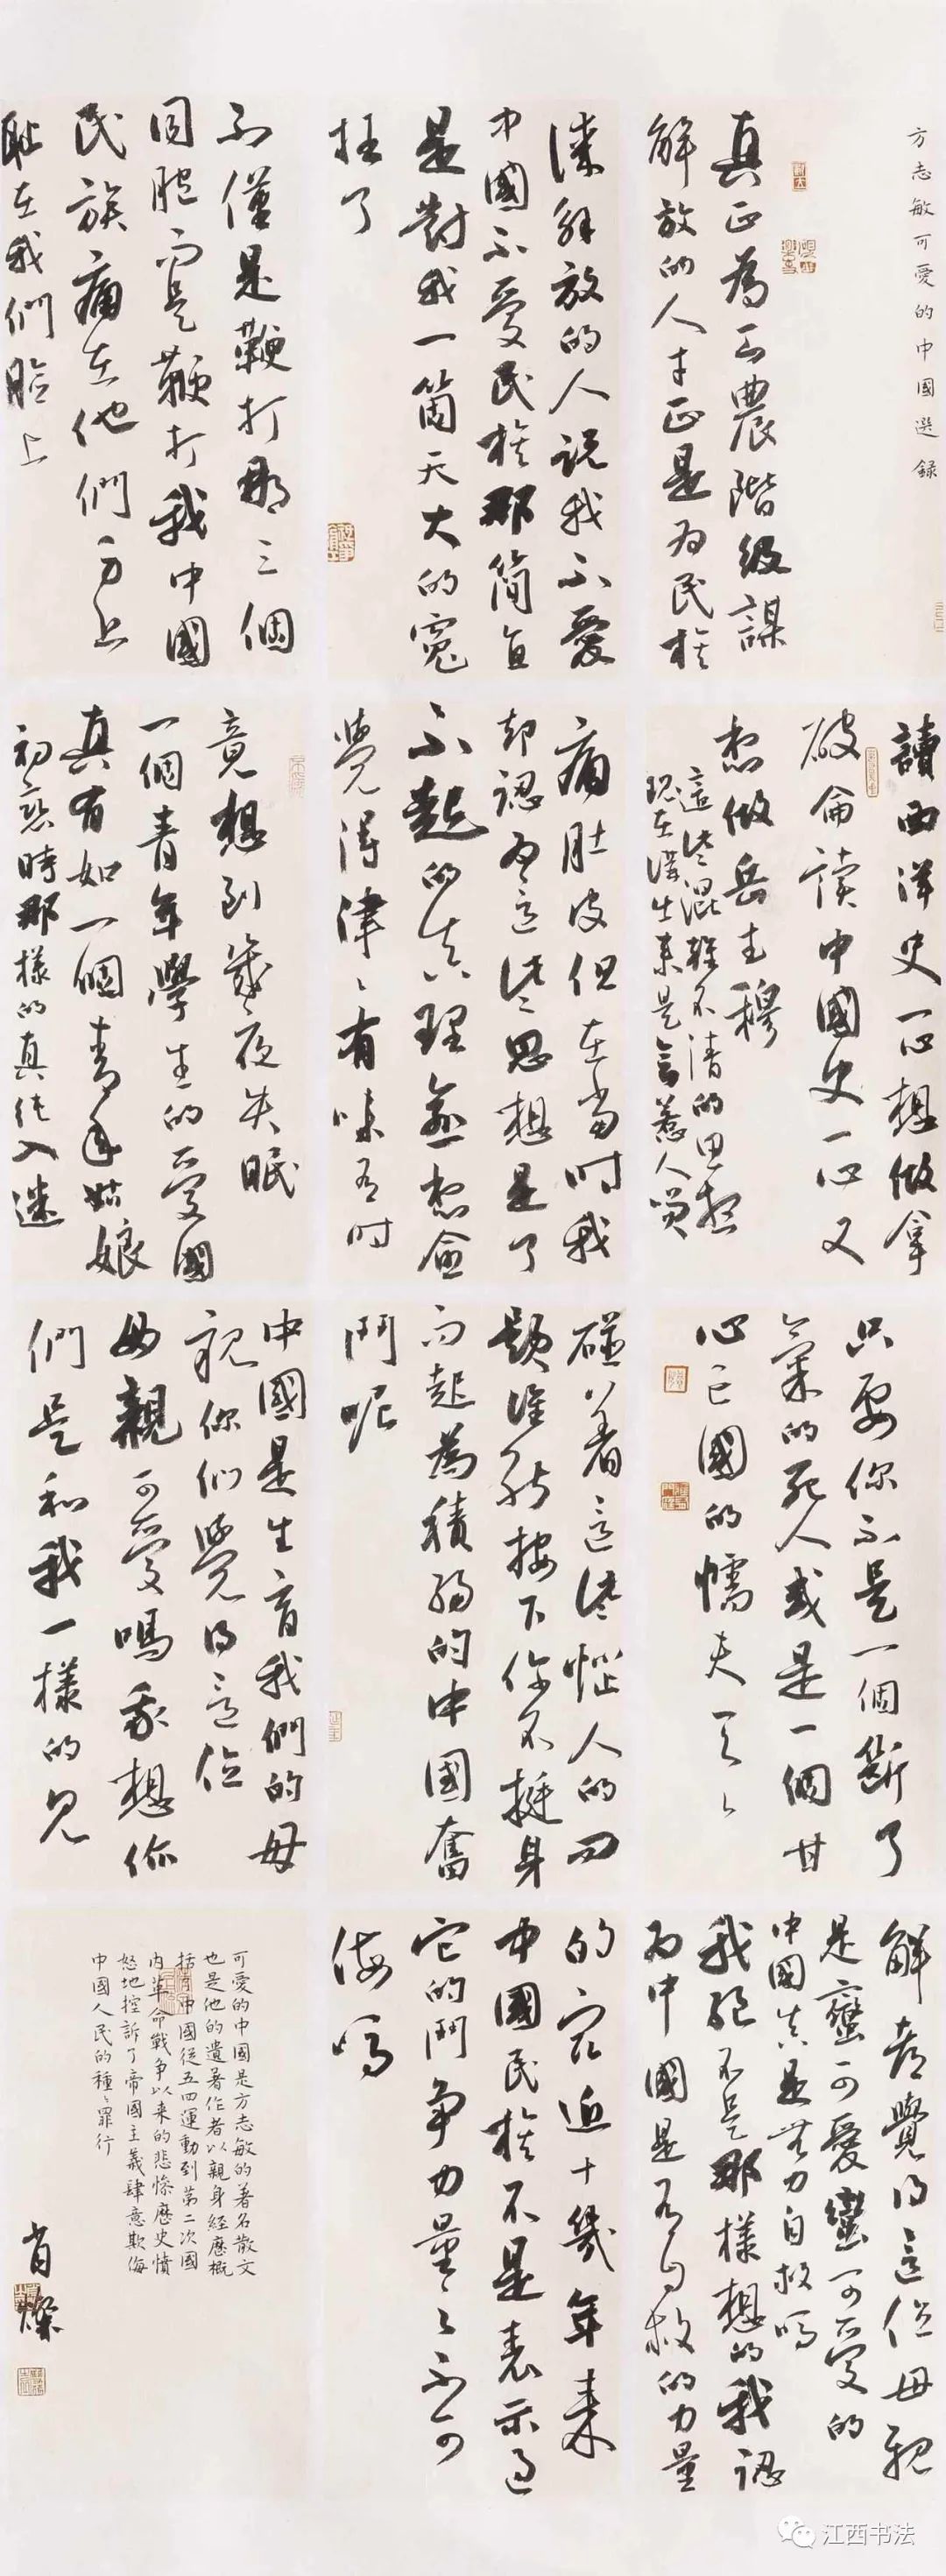 方志敏可愛的中國選錄
真正為工農階級謀
解放的人才正是为民族
謀解放的人説我不愛
中國不愛民族那简直
是對我一箇天大的寃
枉了
不僅是鞭打那三個
同胞而是鞭打我中國
民族痛在他們身上
耻在我們臉上
讀西洋史一心想做拿
破侖读中國史一心又
想做岳武穆
這些混雜不清的思想
現在講出来是会惹人笑
痛肚皮但在当时我
却認為這些思想是了
不起的真理愈想愈
覺得津々有味有时
竟想到幾夜失眠
一個青年學生的愛國
真有如一個青年姑娘
初恋時那樣的真純入迷
只要你不是一個斷了
氣的死人或是一個甘
心亡國的懦夫天天
碰着這些惱人的问
題谁能按下你不挺身
而起為積弱的中國奮
鬥呢
中國是生育我們的母
親你们覺得這位
母親可愛嗎我想你
們是和我一樣的見
解都覺得這位母親
是蠻可愛蠻可愛的
中國真是无力自救嗎
我絕不是那樣想的我認
为中國是有自救的力量
的最近十幾年来
中國民族不是表示过
它的鬥争力量之不可
侮嗎
可愛的中國是方志敏的著名散文
也是他的遺著作者以親身經歷概
括了中國從五四運動到第二次國
内革命戰争以来的悲慘歷史憤
怒地控訴了帝國主義肆意欺侮
中國人民的種々罪行
肖燦
江西书法